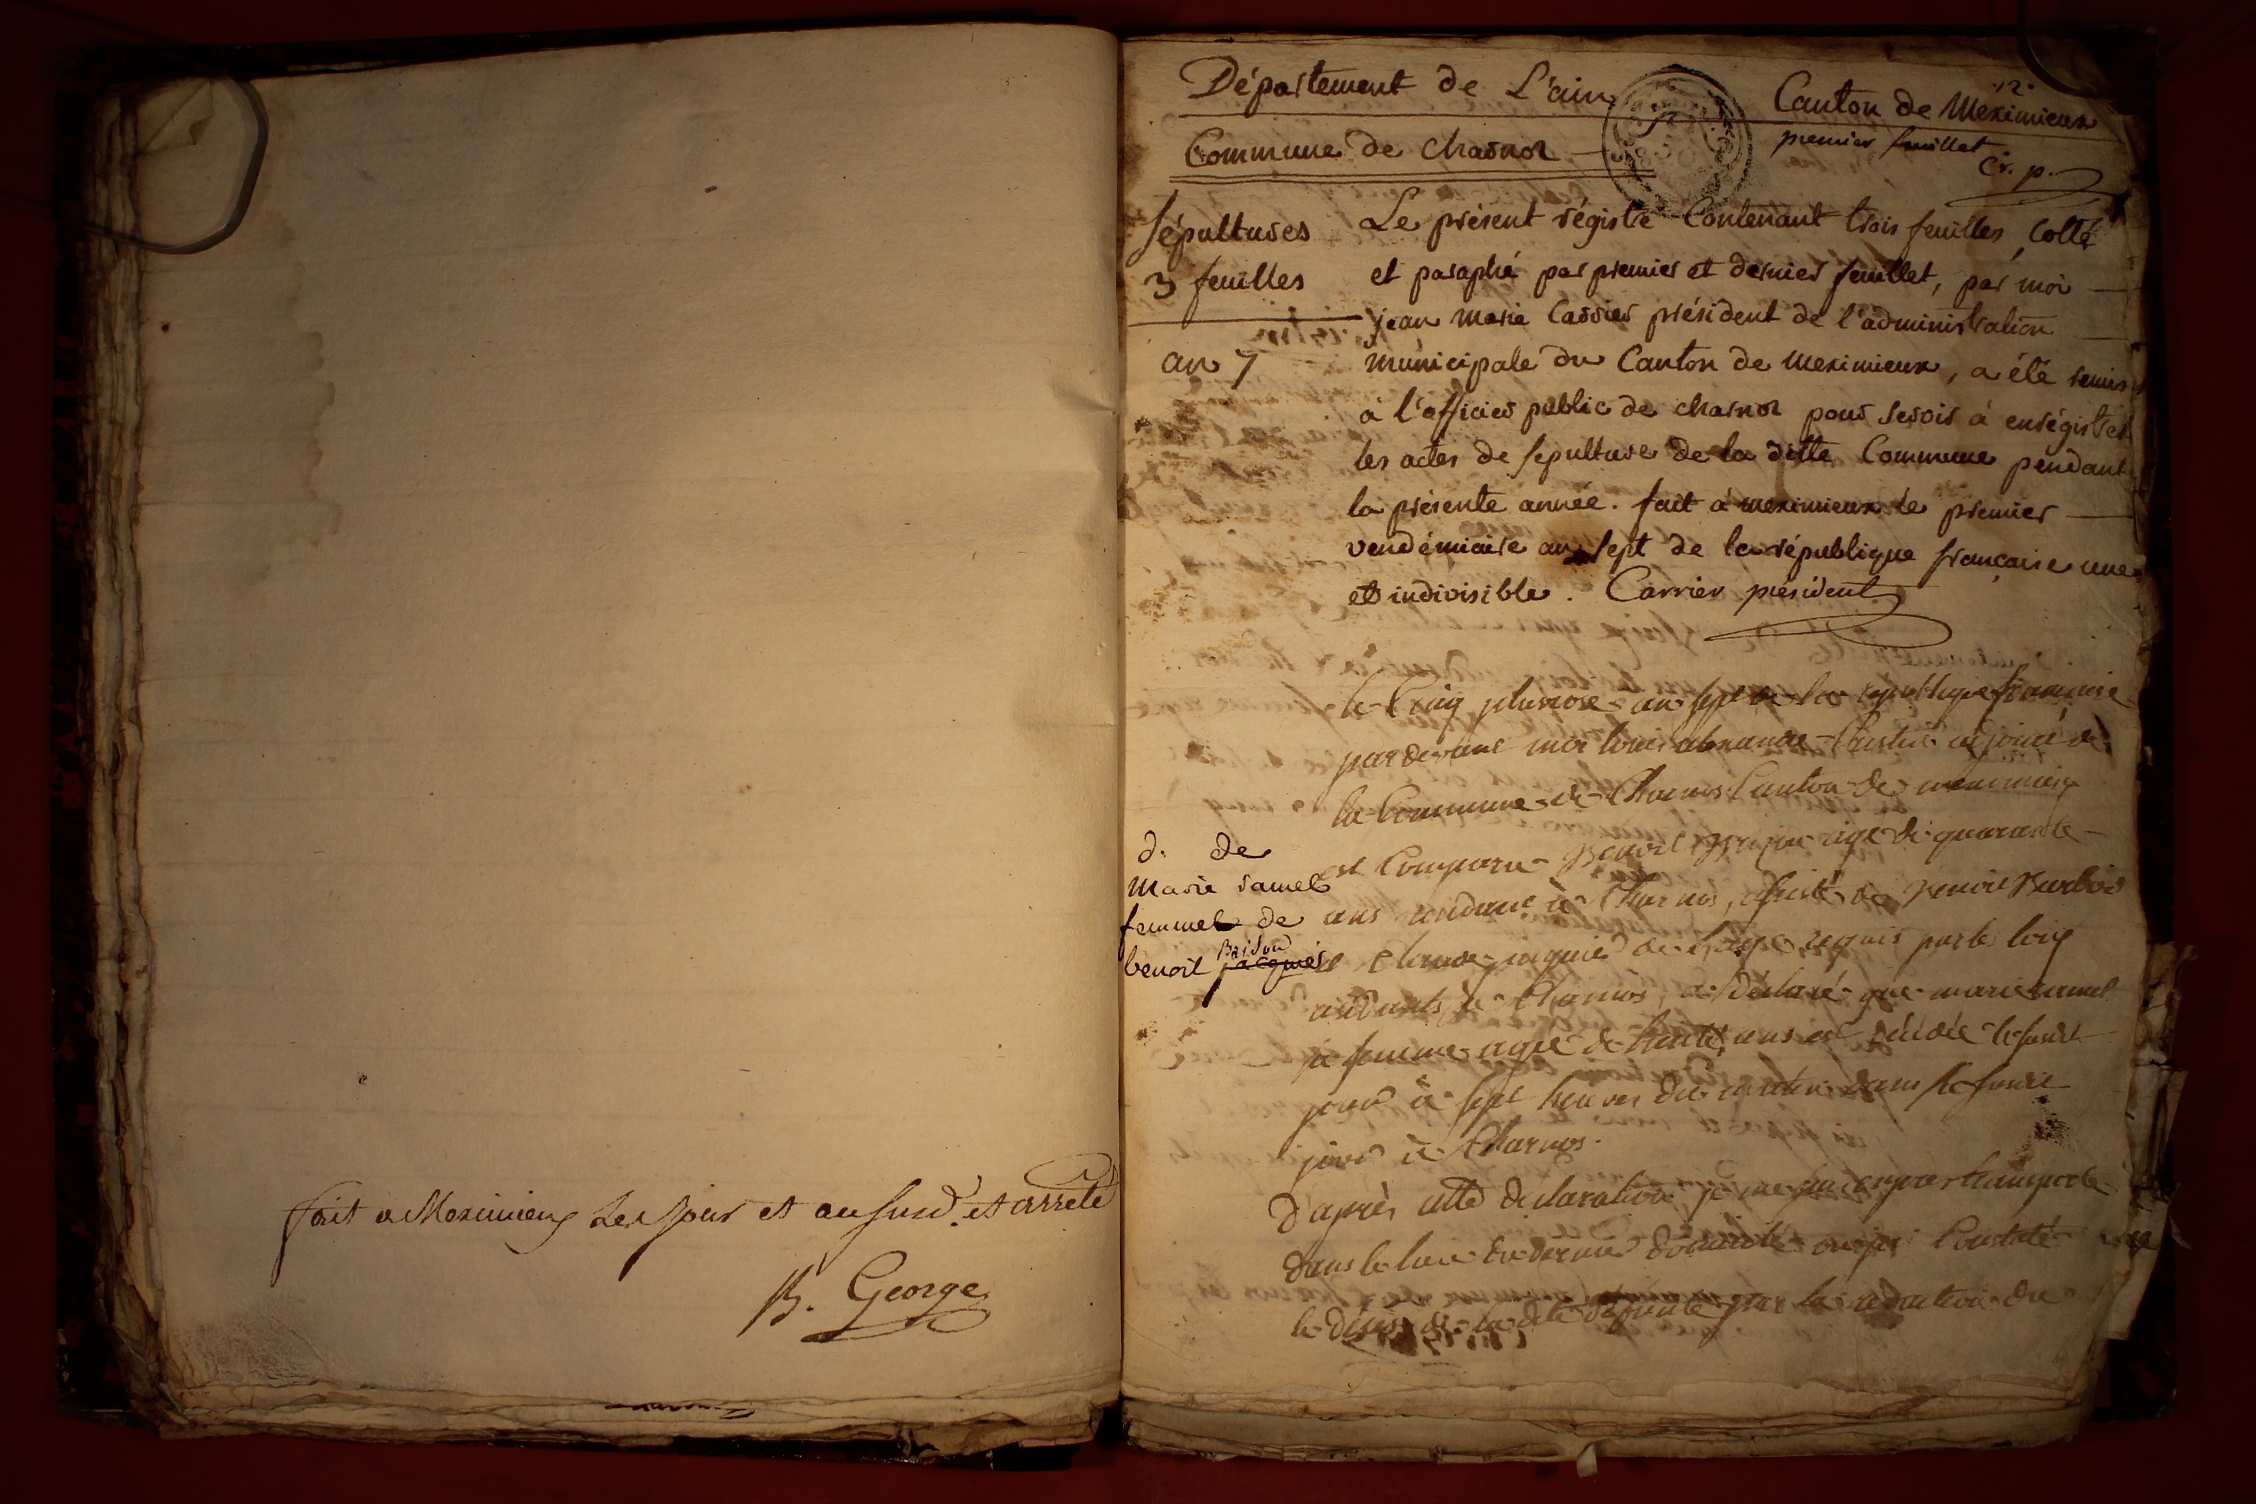 fait a Meximieux Le Jour et an susd. et arreté
B. George
Département de L'ain
Canton de Meximieux
Commune de charnoz
premier feuillet
Cr. p.
Sépultures
3 feuilles
an 7
Le présent régistre Contenant trois feuilles, Cotté
et paraphé par premier et dernier feuillet, par moi
jean marie Carrier président de l'administration
municipale du Canton de meximieux, a été remis
à l'officier public de charnoz pour servir à enrégistrer
les actes de sepulture de la ditte Commune pendant
la présente année. fait à meximieux le premier
vendémiaire an sept de la république française une
et indivisible. Carrier président
le Cinq pluviose an sept de la republique francaise
pardevant moi louis adjoint de
la Commune de Charnos Canton de meximieux
est Comparu Benoit age de quarante
ans residant à Charnos, assisté de Benoit
et Claude jaquier de requis par la loix
residants à Charnos, a déclaré que marie ramel
sa femme agée de trente ans est décédée le susdit
jour à sept heures du matin dans le susdit
jour à Charnos.
D'après cette declaration je me suis transporté
dans le lieu du dernier domicile ou j'ai Constaté
le décès de la dite défunte par la redaction du
d. de
Marie ramel
femme de
benoit jacquier
Brison